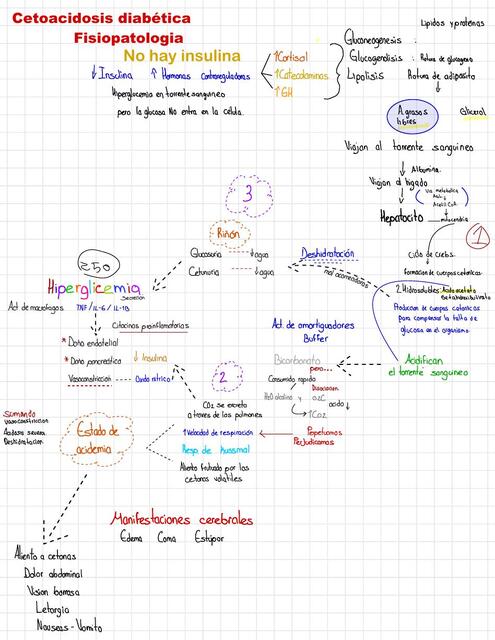 Cetoacidosis diabética
Fisiopatologia
No hay insulina
Lipidos y proteinas
↓ Insulina ↑ Hormonas contrareguladoras
↑Cortisol
↑Catecolaminas
↑GH
Gluconeogenesis :
Glucogenolisis : Rotura de glucogeno
Lipolisis Rotura de adiposito
Hiperglucemia en torrente sanguineo
pero la glucosa No entra en la celula.
A grasos libres
Glicerol
Viajan al torrente sanguineo
Albumina.
Viajan al higado
Via metabolica
Acetil CoA
Hepatocito mitocondria
1
Ciclo de crebs.
formacion de cuerpos cetonicos
2 Hidrosolubles: Acido aceto
Betahidroxibutirato
Produccion de cuerpos cetonicos
para compensar la falta de
glucosa en el organismo
Acidifican
el torrente sanguineo
3
Riñón
Glucosuria ↓agua
Cetonuria ↓agua
Deshidratación
250
Hiperglicemia
Secrecion
Act de macrofagos TNF / IL-6 / IL-1B
Citocinas proinflamatorias
* Daño endotelial
* Daño pancreatico ↓ Insulina
Vasoconstricion Oxido nitrico
Act. de amortiguadores
Buffer
Bicarbonato
pero...
Consumido rapido
Disociacion
acido ↓
↑Co2
2
CO2 se excreta
a traves de los pulmones
↑ Velocidad de respiración
Popotumos
Perjudicamos
Resp. de kussmal
Aliento frutado por las
cetonas volatiles
Sumando
vasoconstriccion
Acidosis severa
Deshidratacion
Estado de
acidemia
Manifestaciones cerebrales
Edema Coma Estupor
Aliento a cetonas
Dolor abdominal
Vision borrosa
Letargia
Nauseas - Vomito